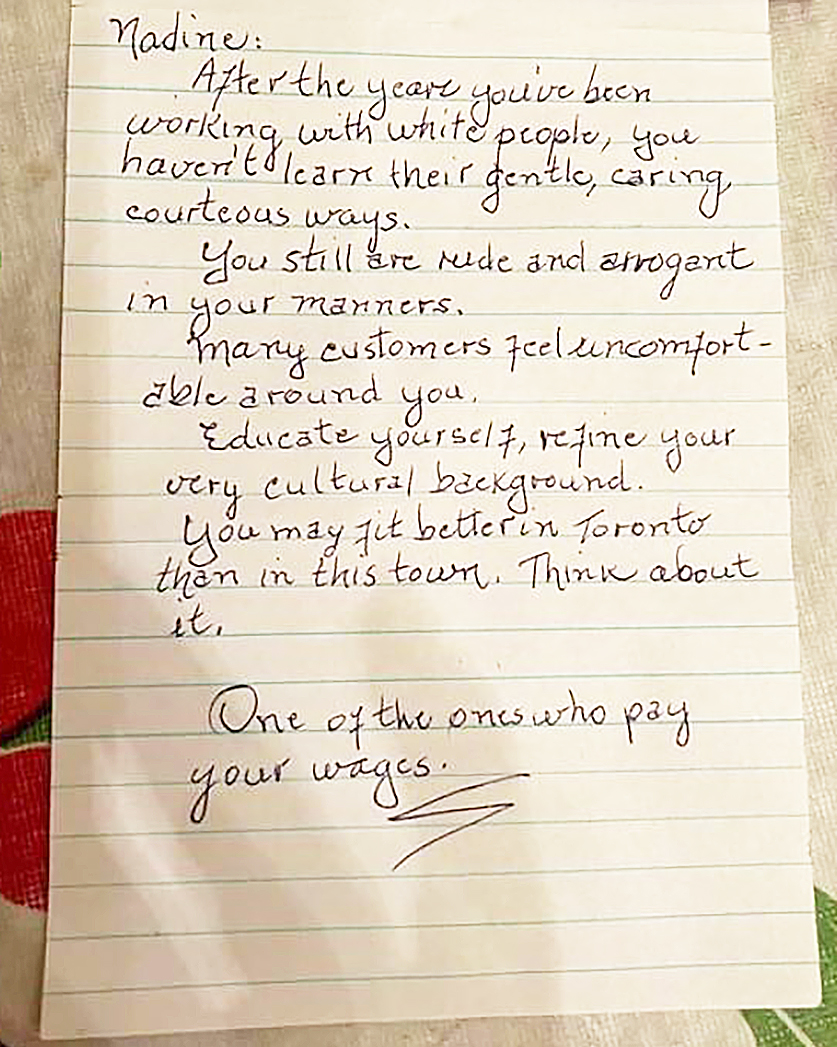 Nadine:
After the years you've been
working with white people, you
haven't learn their gentle, caring,
courteous ways.
You still are rude and arrogant
in your manners.
Many customers feel uncomfort-
able around you.
Educate yourself, refine your
very cultural background.
You may fit better in Toronto
than in this town. Think about
it.
One of the ones who pay
your wages.